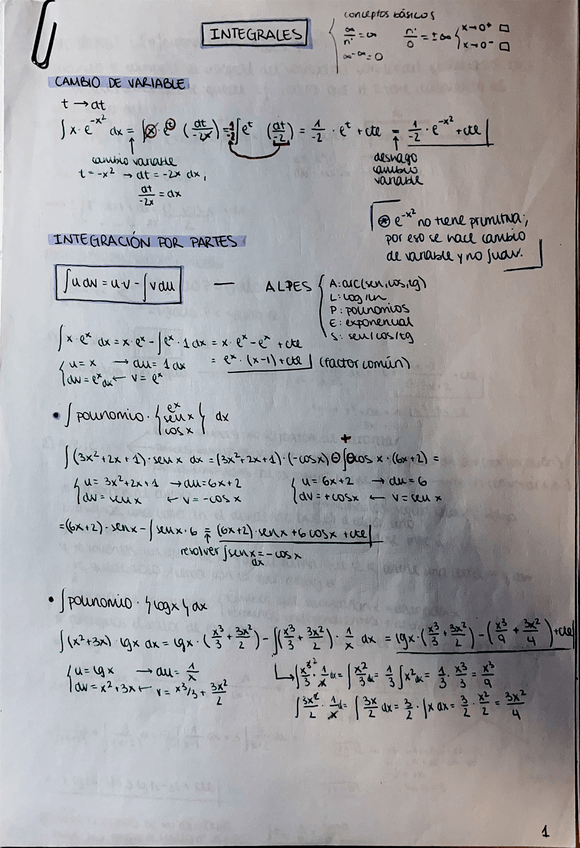 INTEGRALES
conceptos básicos
∞/nº = ∞   nº/0 = ±∞ { x→0⁺ □
∞^-∞ = 0   x→0⁻ □
CAMBIO DE VARIABLE
t → dt
∫x·e^-x² dx = ∫x e^t (dt/-2x) = 1/-2 ∫e^t (dt/-2) = 1/-2 · e^t + cte = 1/-2 · e^-x² + cte
cambio variable
t = -x² → dt = -2x dx,
dt/-2x = dx
deshago
cambio
variable
⊛ e^-x² no tiene primitiva;
por eso se hace cambio
de variable y no ∫udv.
INTEGRACIÓN POR PARTES
∫u dv = u·v - ∫v du — ALPES
A: arc(sen, cos, tg)
L: log/ln
P: polinomios
E: exponencial
S: sen/cos/tg
∫x·e^x dx = x·e^x - ∫e^x·1 dx = x·e^x - e^x + cte
{ u = x → du = 1 dx   = e^x·(x-1) + cte (factor común)
dv = e^x dx ← v = e^x
• ∫polinomio · { e^x senx cosx } dx
∫(3x²+2x+1)·senx dx = (3x²+2x+1)·(-cosx) ⊖ ∫⊖cosx·(6x+2) =
+
{ u = 3x²+2x+1 → du = 6x+2   { u = 6x+2 → du = 6
dv = senx ← v = -cosx   dv = +cosx ← v = senx
= (6x+2)·senx - ∫senx·6 = (6x+2)·senx + 6cosx + cte
resolver ∫senx dx = -cosx
• ∫polinomio · {logx} dx
∫(x²+3x)·lgx dx = lgx·(x³/3 + 3x²/2) - ∫(x³/3 + 3x²/2)·1/x dx = lgx·(x³/3 + 3x²/2) - (x³/9 + 3x²/4) + cte
{ u = lgx → du = 1/x   ↳ ∫x³/3 · 1/x dx = ∫x²/3 dx = 1/3 ∫x² dx = 1/3 · x³/3 = x³/9
dv = x²+3x ← v = x³/3 + 3x²/2   ∫3x²/2 · 1/x dx = ∫3x/2 dx = 3/2 · ∫x dx = 3/2 · x²/2 = 3x²/4
1